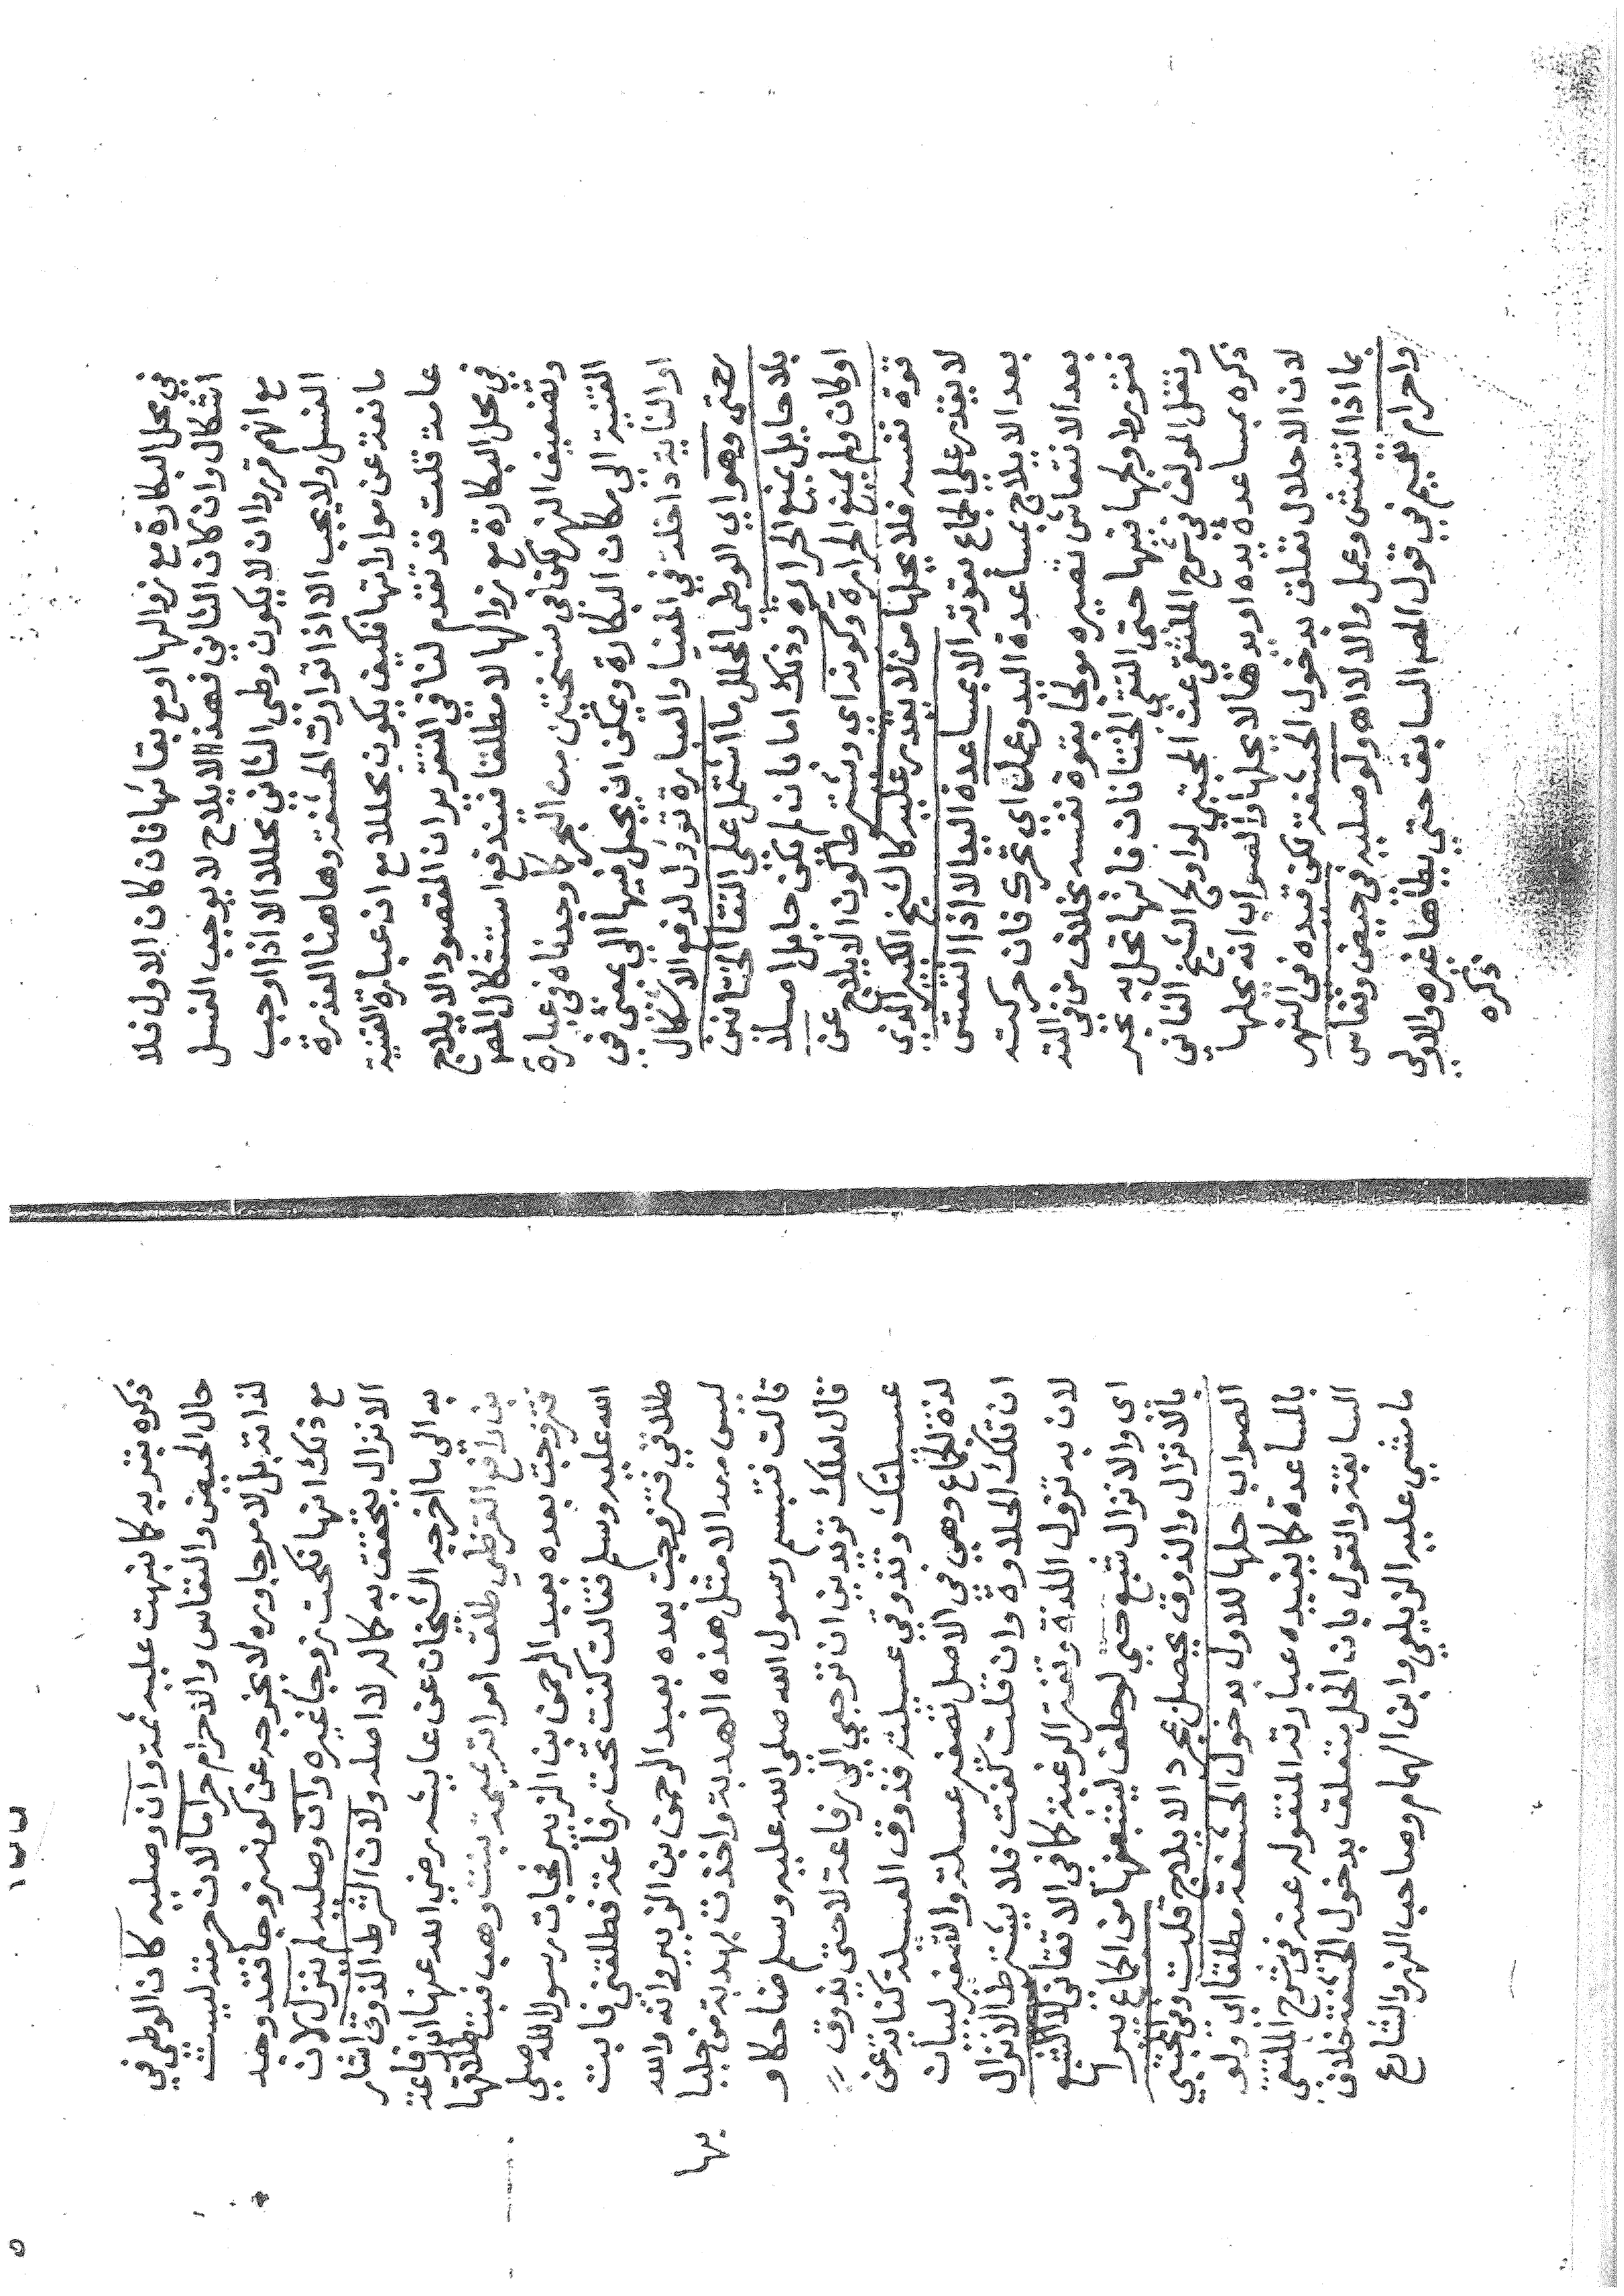 في محل البكارة مع زوالها او مع بقائها فان كان الاول فلا
اشكال وان كان الثاني فهذا الايلاج لا يوجب الغسل
مع انهم قرروا ان لا يكون وطى الثاني محللا الا اذا اوجب
الغسل ولا يجب الا اذا توارت الحشفة وهاهنا العذرة
مانعة عن مواراتها فكيف يكون محللا مع ان عبارة القنية
عامة قلت قد تقدم لنا في التقرير ان المقصود الايلاج
في محل البكارة مع زوالها لا مطلقا فيندفع استشكال المص
وتضعيف النهر كما في نسختين من البحر كما وجدناه في عبارة
القنية الى مكان البكارة ويمكن ان يجعل فيها الى بمعنى في
او الغاية داخلة في المغيا والعبارة تؤول لدفع الاشكال
حتى وهو اي الوطى المحلل ما اشتمل على التقا الختانين
بلا حايل يمنع الحرارة وذلك اما بانه لم يكن حايل اصلا
او كان ولم يمنع الحرارة وكونه اي ويشترط كون الايلاج عن
قوة نفسه فلا يحلها من لا يقدر عليه كالشيخ الكبير الذي
لا يقدر على الجماع بقوته الا بمساعدة اليد الا اذا انتعش
بعد الايلاج بمساعدة اليد وعمل اي تحرك فان حركته
بعد الانتعاش تصيره مولجا بقوة نفسه بخلاف من في الته
فتور واولجها فيها حتى التقى الختانان فانها تحل به بحر
ونقل المولف في شرح الملتقى عن المجتبى لو اولج الشيخ الفاني
ذكره بمساعدة يده او يدها لا يحلها والصواب انه يحلها
لان الاحلال تعلق بدخول الحشفة لكن قيده في النهر
بما اذا انتعش وعمل والا لا اه ولو صليه في حيض ونفاس
واحرام تعميم في قول المص السابق حتى يطأها غيره والاولى
ذكره
١٣٣
ذكره بقربه كما نبهت عليه ثمة وان وصليه كان الوطي في
حال الحيض والنفاس والاحرام حراما لان حرمته ليست
لذاته بل لامر جاوره لا يخرجه عن كونه زوجا فقد وجد
مع ذلك انها نكحت زوجا غيره وان وصليه لم ينزل لان
الانزال يتحقق به كماله لا اصله ولان الشرط الذوق اشار
به الى ما اخرجه الشيخان عن عايشه رضي الله عنها ان رفاعة
بن رافع القرظي طلق امراته تميمة بنت وهب فبت طلاقها
فتزوجت بعده بعبد الرحمن بن الزبير فجات رسول الله صلى
الله عليه وسلم فقالت كنت تحت رفاعة فطلقني فابت
طلاقي فتزوجت بعده بعبد الرحمن بن الزبير وانه والله
ليس معه الا مثل هذه الهدبة واخذت بهدبة من جلبا
بها
قالت فتبسم رسول الله صلى الله عليه وسلم ضاحكا و
قال لعلك تريدين ان ترجعي الى رفاعة لا حتى يذوق
عسيلتك وتذوقي عسيلته فذوق العسيلة كناية عن
لذة الجماع وهي في الاصل تصغير عسلة والتصغير لبيان
ان تلك الحلاوة وان قلت كفت فلا يشترط الانزال
لان به تزول اللذة وتفتر الرغبة كما في الاتقاني لا الشبع
اى والانزال شبع حتى لو حلف ليشبعنها من الجماع يبرا
بالانزال والذوق يحصل بمجرد الايلاج قلت وفي المجتبى
الصواب حلها للاول بدخول الحشفة مطلقا اى ولو
بالمساعدة كما يفيده عبارته المنقوله عنه في شرح الملتقى
السابقة والقول بان الحل متعلق بدخول الحشفة خلاف
ما مشي عليه الزيلعي وابن الهمام وصاحب النهر والشارع